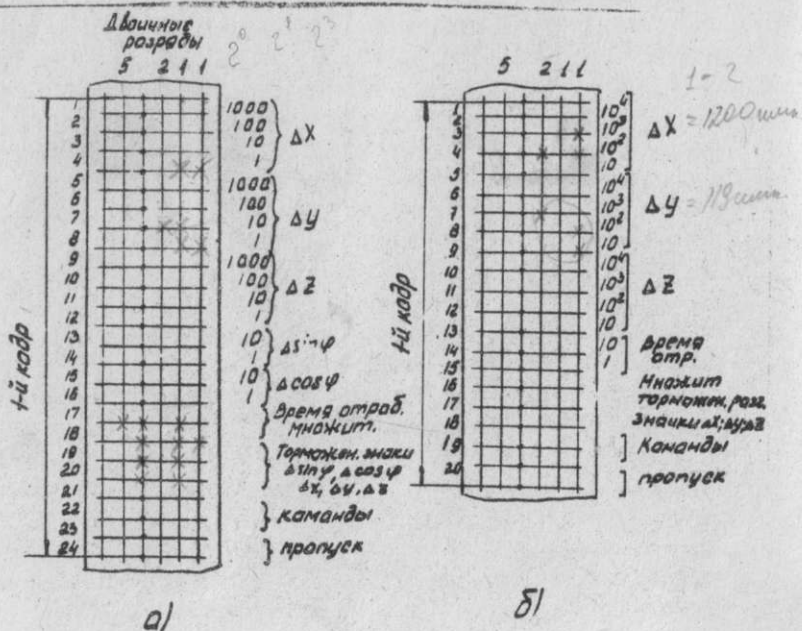 Двоичные
разряды
2⁰ 2¹ 2³
5 2 1 1
1-й кадр
1
2
3
4
5
6
7
8
9
10
11
12
13
14
15
16
17
18
19
20
21
22
23
24
1000
100
10
1
ΔX
1000
100
10
1
ΔY
1000
100
10
1
ΔZ
10
1
Δsinφ
10
1
Δcosφ
Время отраб.
множит.
Торможен. знаки
Δsinφ, Δcosφ
Δx, Δy, Δz
команды
пропуск
а)
5 2 1 1
1-й кадр
1
2
3
4
5
6
7
8
9
10
11
12
13
14
15
16
17
18
19
20
10⁴
10³
10²
10
ΔX
1-2
= 1200 имп
10⁴
10³
10²
10
ΔY
10⁴
10³
10²
10
ΔZ
10
1
Время
отр.
Множит
торможен. разг.
Значки Δx; Δy; Δz
Команды
пропуск
б)